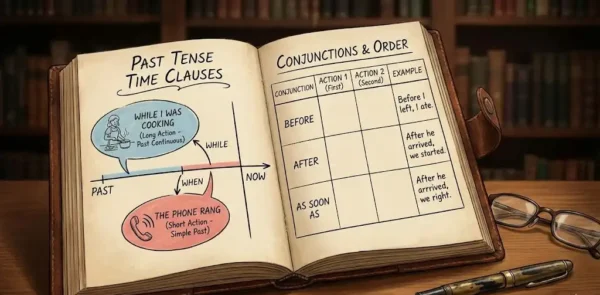 PAST TENSE
TIME CLAUSES
WHILE I WAS
COOKING
(Long Action -
Past Continuous)
WHILE
PAST
WHEN
NOW
THE PHONE RANG
(Short Action -
Simple Past)
CONJUNCTIONS & ORDER
CONJUNCTION
ACTION 1
(First)
ACTION 2
(Second)
EXAMPLE
BEFORE
Before I
left, I ate.
AFTER
After he
arrived,
we started.
AS SOON
AS
After he
arrived,
we right.